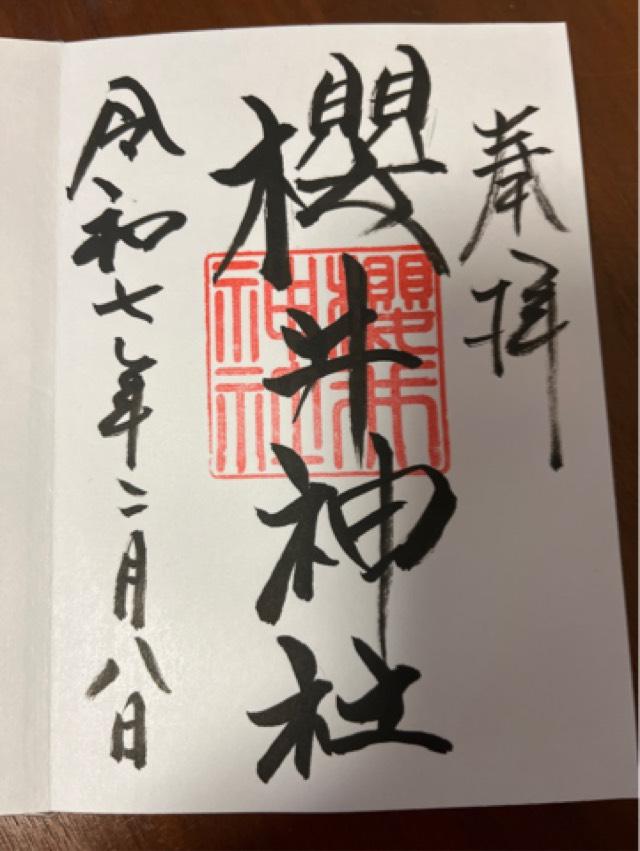 奉拝
櫻井神社
櫻井
神社
令和七年二月八日